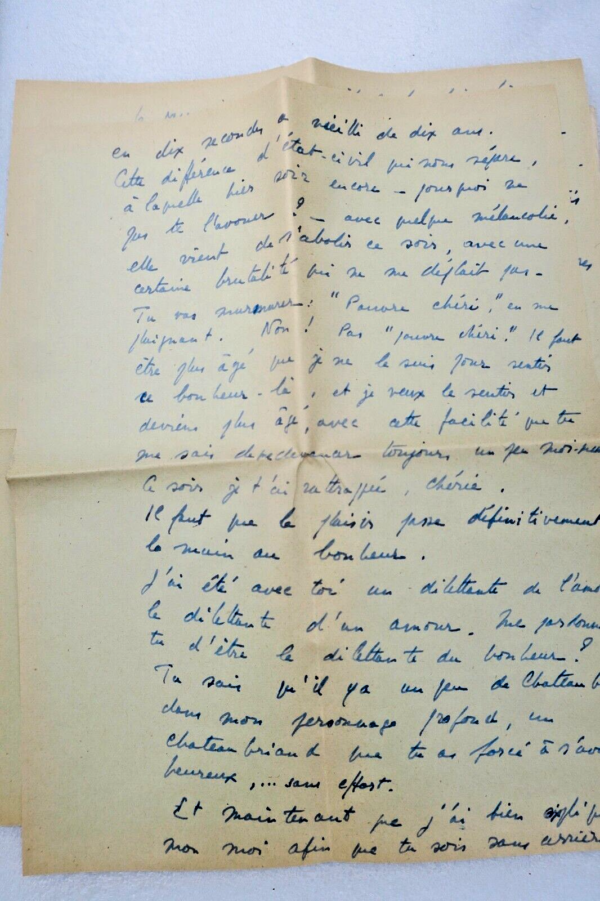 en dix secondes a vieilli de dix ans.
Cette différence d'état-civil qui nous sépare,
à laquelle hier soir encore — pourquoi ne
pas te l'avouer ? — avec quelque mélancolie,
elle vient de s'abolir ce soir, avec une
certaine brutalité qui ne me déplait pas —
Tu vas murmurer : "Pauvre chéri," en me
plaignant. Non ! Pas "pauvre chéri." Il faut
être plus âgé que je ne le suis pour sentir
ce bonheur-là, et je veux le sentir et
deviens plus âgé, avec cette facilité que tu
me sais de redevenir toujours un peu moi-même
Ce soir je t'ai rattrapée, chérie.
Il faut que le plaisir passe définitivement
la main au bonheur.
J'ai été avec toi un dilettante de l'amo
le dilettante d'un amour. Me pardonne
tu d'être le dilettante du bonheur ?
Tu sais qu'il y a un peu de Chateaub
dans mon personnage profond, un
chateaubriand que tu as forcé à s'avo
heureux,... sans effort.
Et maintenant que j'ai bien expliqu
mon moi afin que tu sois sans arrièr